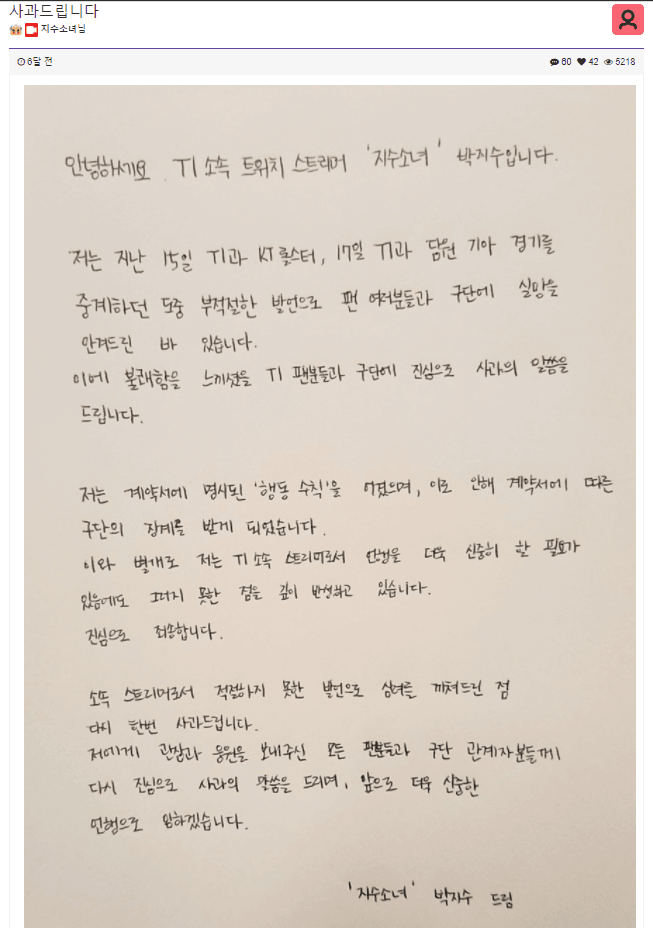 사과드립니다
지수소녀님
6달 전
60 42 5218
안녕하세요. T1 소속 트위치 스트리머 '지수소녀' 박지수입니다.
저는 지난 15일 T1과 KT롤스터, 17일 T1과 담원 기아 경기를
중계하던 도중 부적절한 발언으로 팬 여러분들과 구단에 실망을
안겨드린 바 있습니다.
이에 불쾌함을 느끼셨을 T1 팬분들과 구단에 진심으로 사과의 말씀을
드립니다.
저는 계약서에 명시된 '행동 수칙'을 어겼으며, 이로 인해 계약서에 따른
구단의 징계를 받게 되었습니다.
이와 별개로 저는 T1 소속 스트리머로서 언행을 더욱 신중히 할 필요가
있음에도 그러지 못한 점을 깊이 반성하고 있습니다.
진심으로 죄송합니다.
소속 스트리머로서 적절하지 못한 발언으로 심려를 끼쳐드린 점
다시 한번 사과드립니다.
저에게 관심과 응원을 보내주신 모든 팬분들과 구단 관계자분들께
다시 진심으로 사과의 말씀을 드리며, 앞으로 더욱 신중한
언행으로 임하겠습니다.
'지수소녀' 박지수 드림